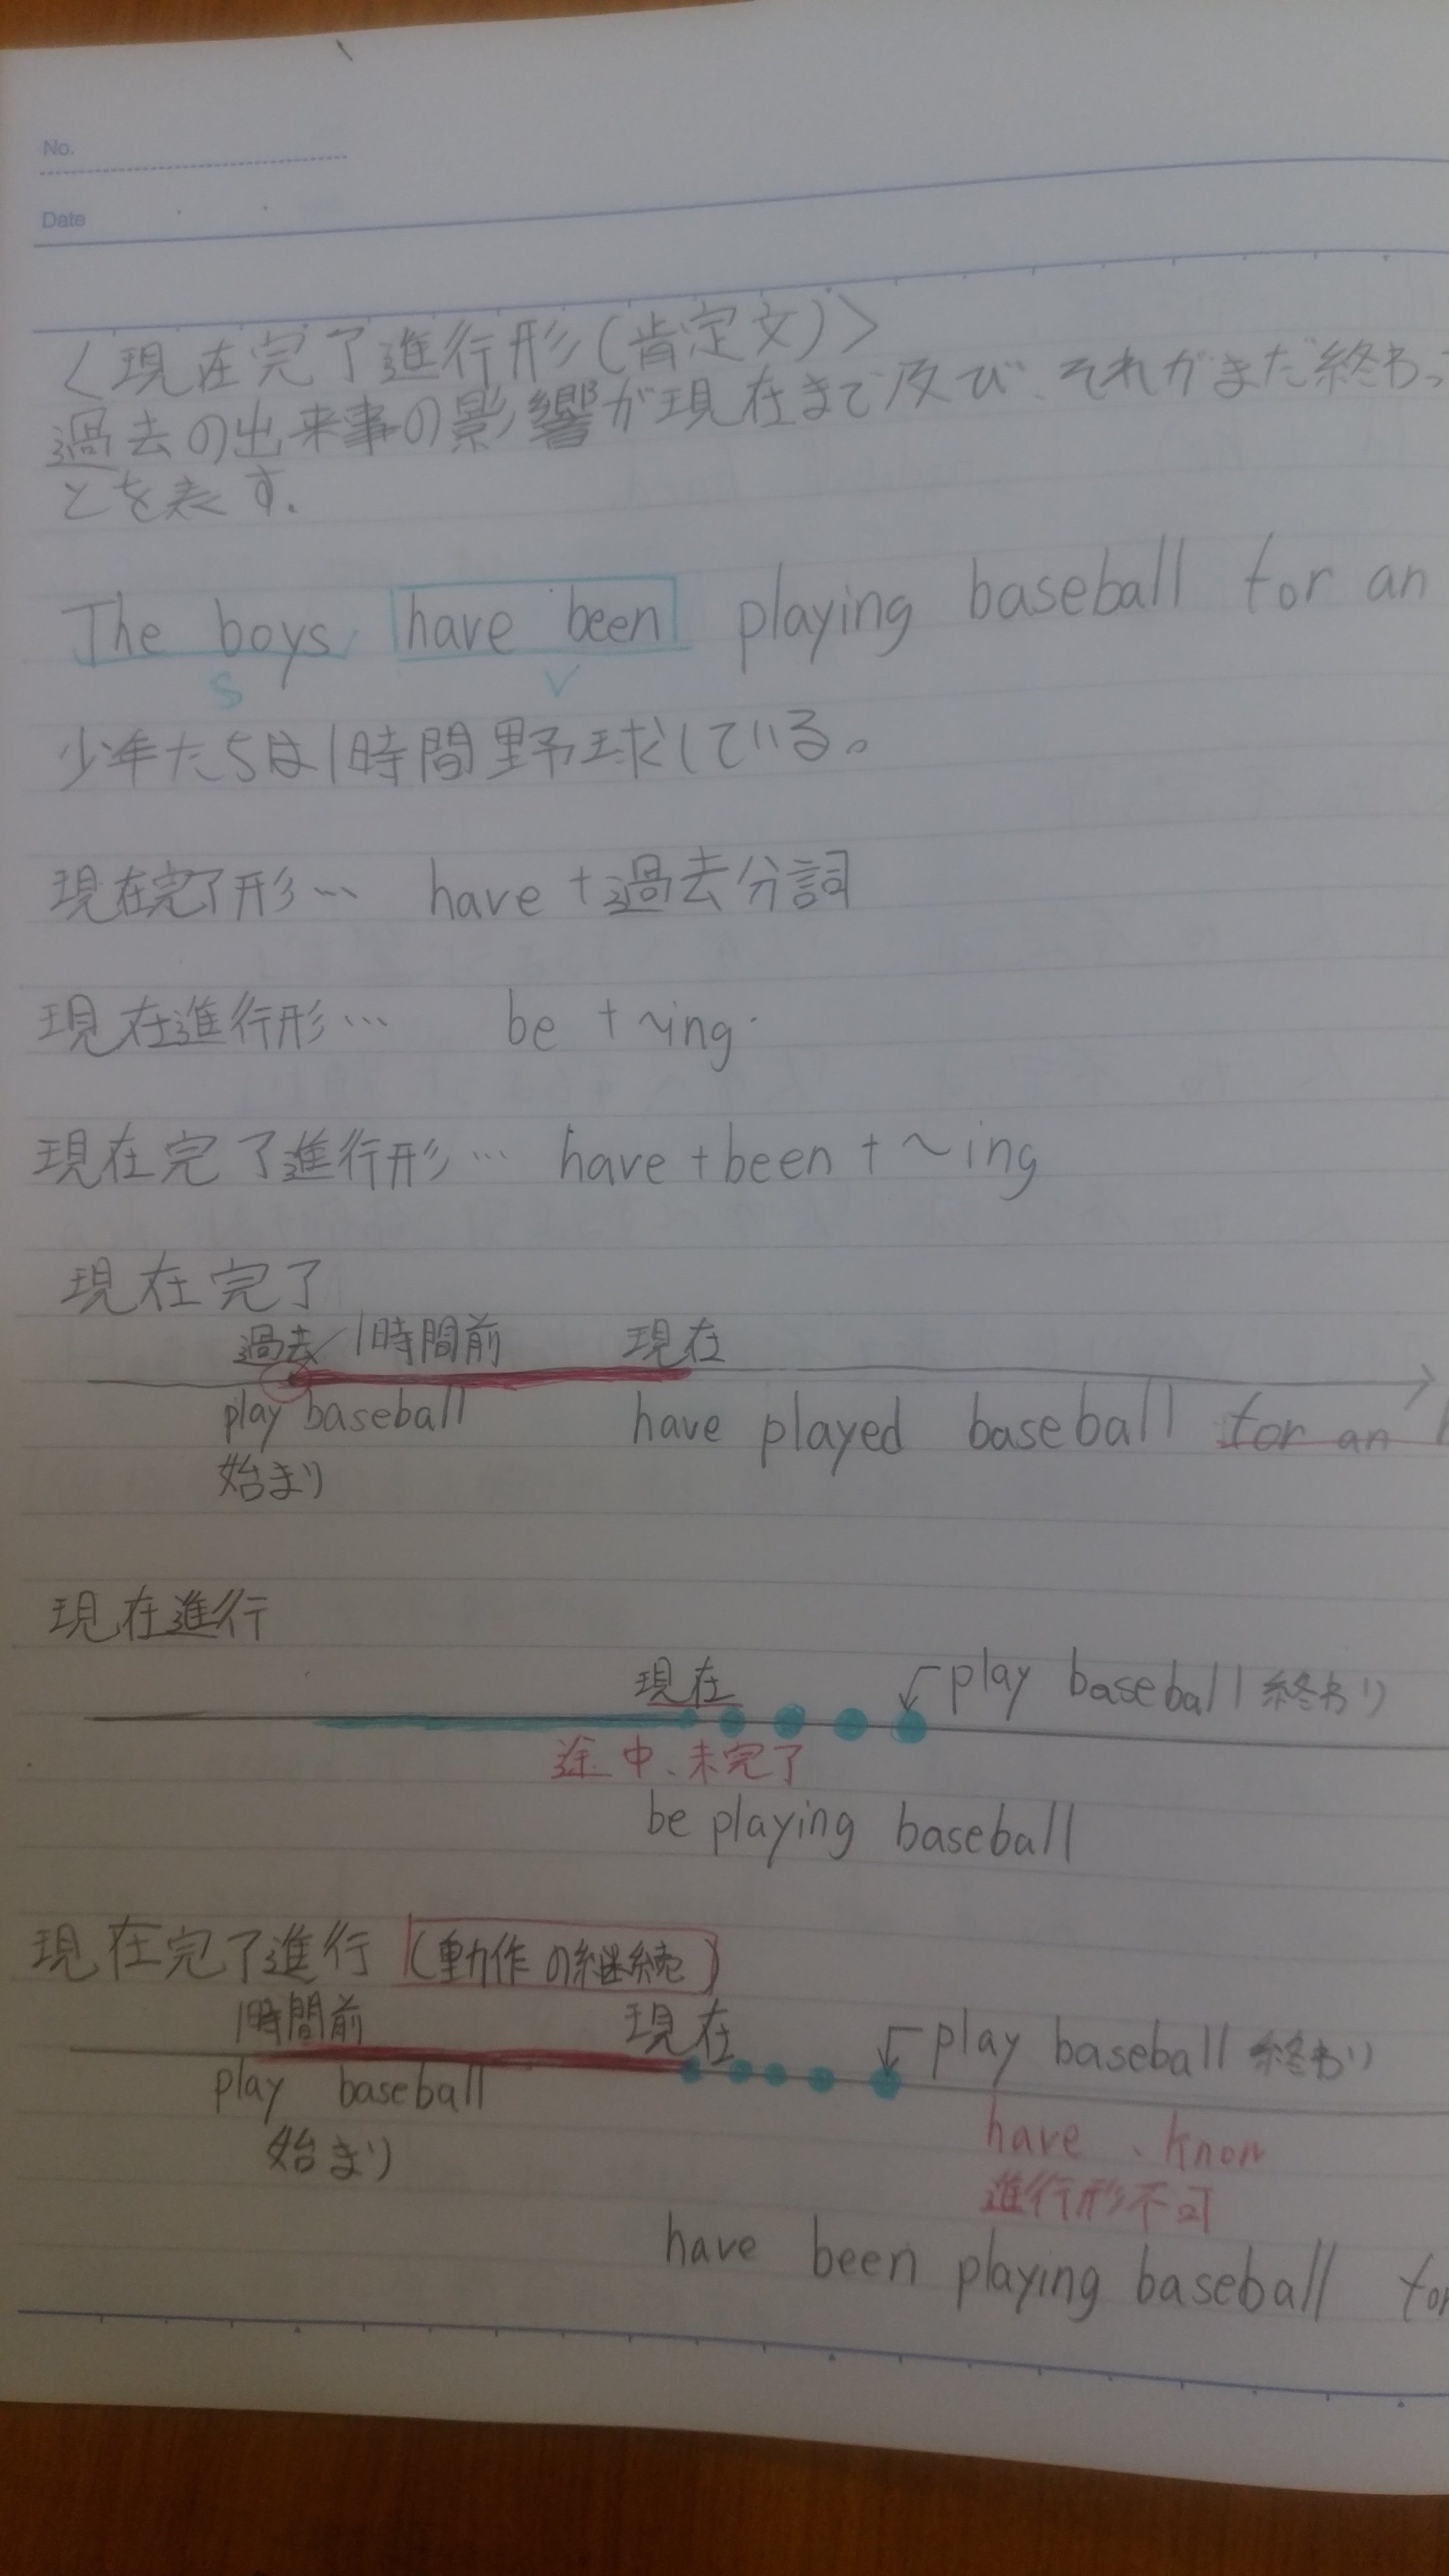 No.
Date
〈現在完了進行形(肯定文)〉
過去の出来事の影響が現在まで及び、それがまだ終わっ
とを表す.
The boys have been playing baseball for an
S V
少年たちは1時間野球している。
現在完了形… have +過去分詞
現在進行形… be + ~ing
現在完了進行形… have + been + ~ing
現在完了
過去/1時間前 現在
play baseball have played baseball for an
始まり
現在進行
現在 play baseball 終わり
途中、未完了
be playing baseball
現在完了進行 (動作の継続)
1時間前 現在 play baseball 終わり
play baseball
始まり have、know
進行形不可
have been playing baseball for